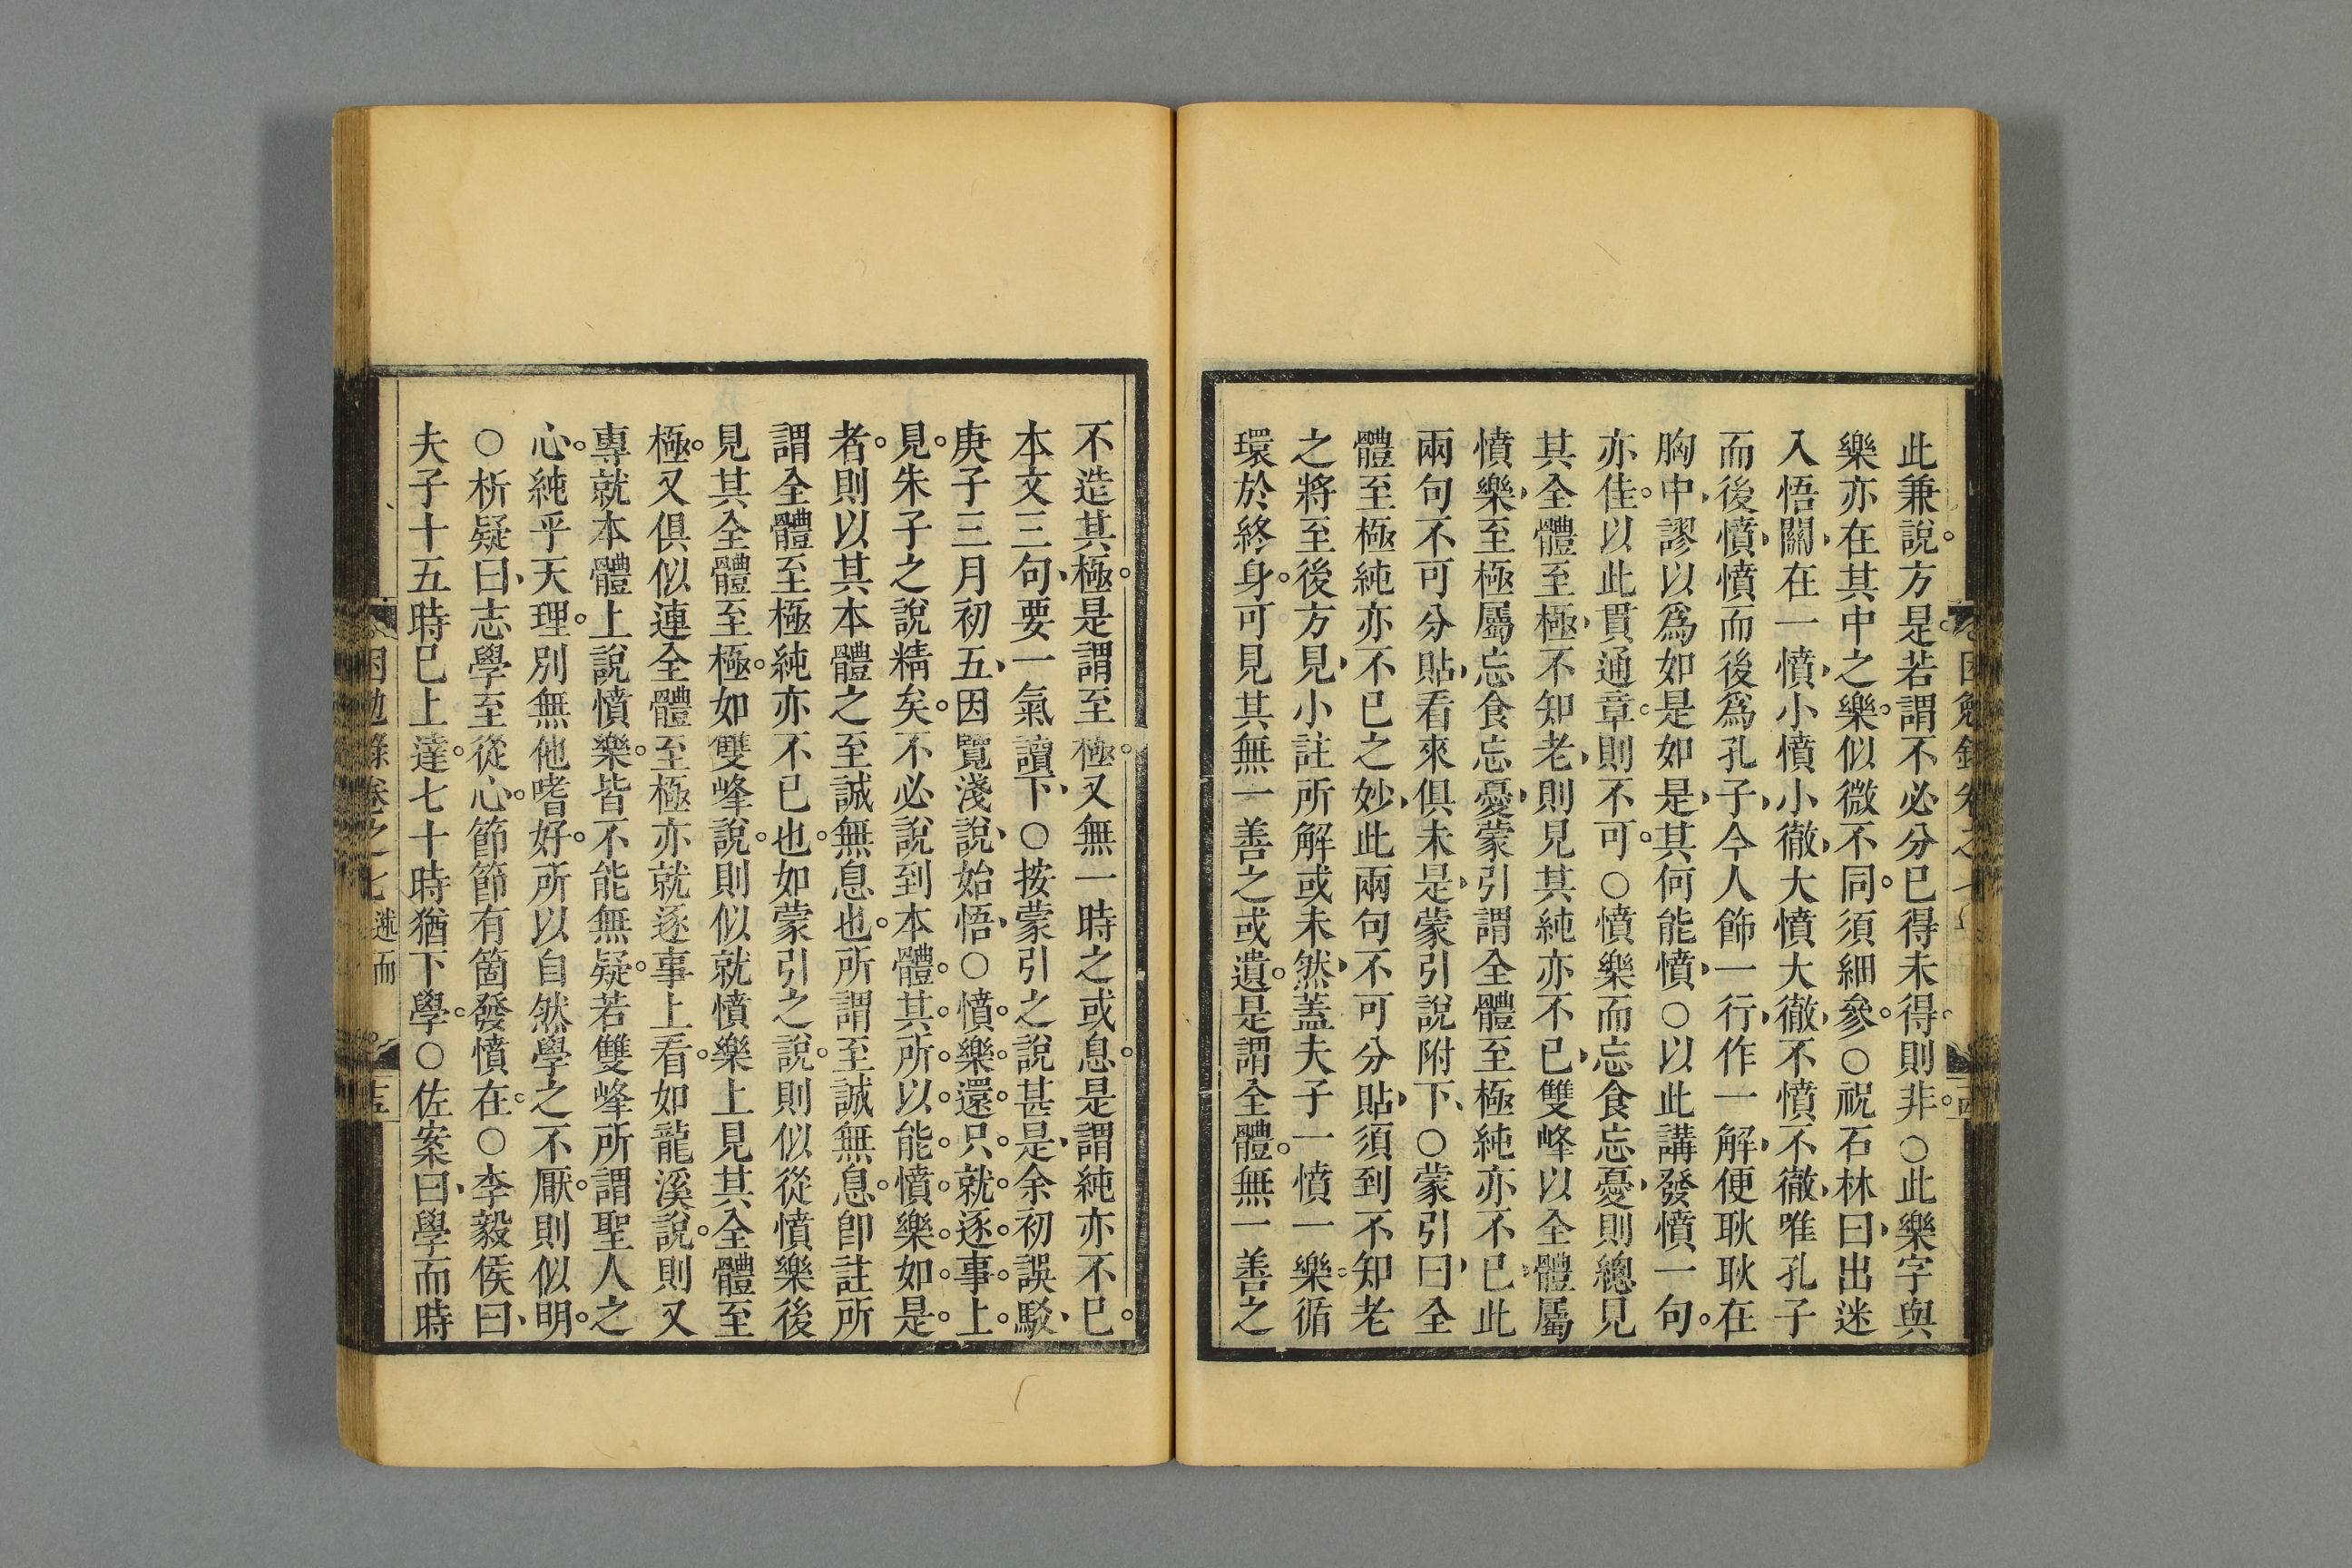 此兼說方是若謂不必分已得未得則非○此樂字與
樂亦在其中之樂似微不同須細參○祝石林曰出迷
入悟關在一憤小憤小徹大憤大徹不憤不徹唯孔子
而後憤憤而後爲孔子今人飾一行作一解便耿耿在
胸中謬以爲如是如是其何能憤○以此講發憤一句
亦佳以此貫通章則不可○憤樂而忘食忘憂則總見
其全體至極不知老則見其純亦不已雙峰以全體屬
憤樂至極屬忘食忘憂蒙引謂全體至極純亦不已此
兩句不可分貼看來俱未是蒙引說附下○蒙引曰全
體至極純亦不已之妙此兩句不可分貼須到不知老
之將至後方見小註所解或未然蓋夫子一憤一樂循
環於終身可見其無一善之或遺是謂全體無一善之
不造其極是謂至極又無一時之或息是謂純亦不已
本文三句要一氣讀下○按蒙引之說甚是余初誤駁
庚子三月初五因覽淺說始悟○憤樂還只就逐事上
見朱子之說精矣不必說到本體其所以能憤樂如是
者則以其本體之至誠無息也所謂至誠無息卽註所
謂全體至極純亦不已也如蒙引之說則似從憤樂後
見其全體至極如雙峰說則似就憤樂上見其全體至
極又俱似連全體至極亦就逐事上看如龍溪說則又
專就本體上說憤樂皆不能無疑若雙峰所謂聖人之
心純乎天理別無他嗜好所以自然學之不厭則似明
○析疑曰志學至從心節節有箇發憤在○李毅侯曰
夫子十五時已上達七十時猶下學○佐案曰學而時
困勉錄卷之七 述而